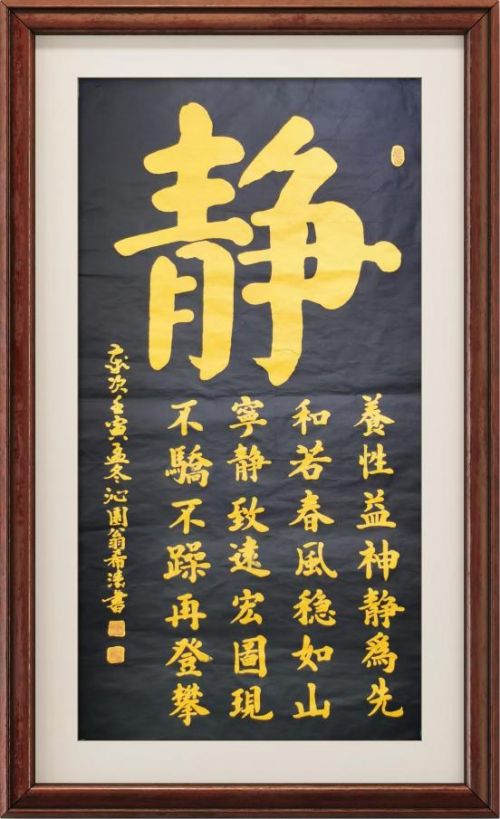 静
養性益神静爲先
和若春風稳如山
寧静致遠宏圖現
不驕不躁再登攀
歲次壬寅孟冬沁園翁希法書